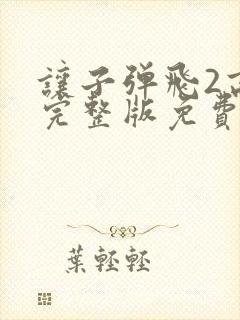 讓子弹飛2高
完整版免費
葉輕輕